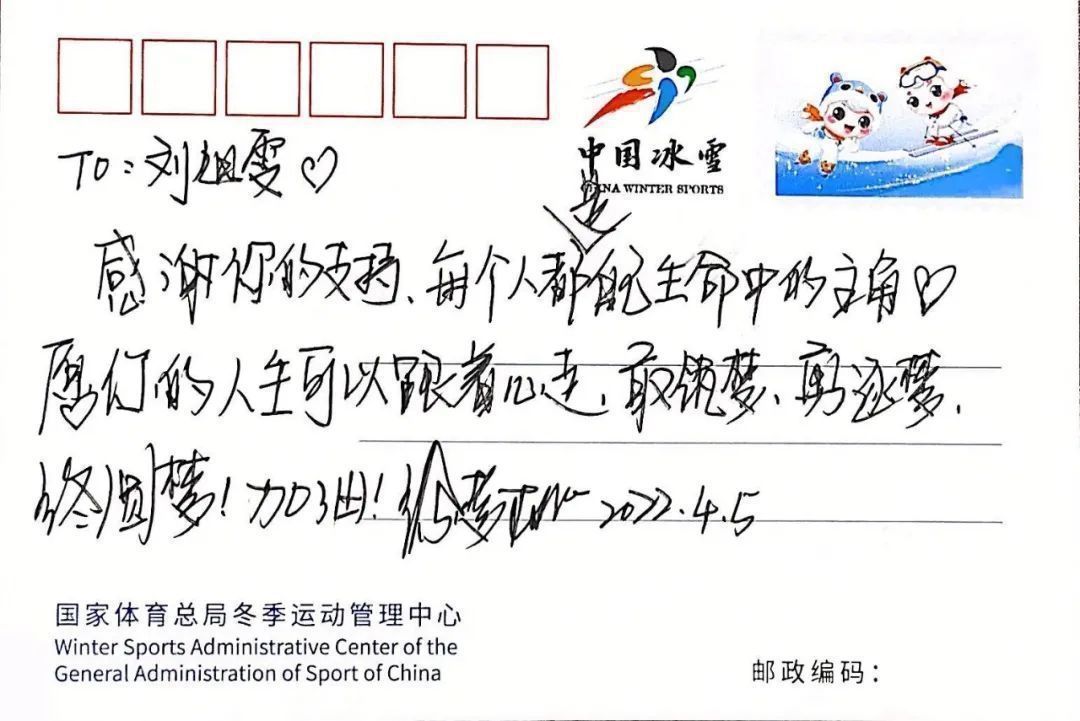 中国冰雪
CHINA WINTER SPORTS
TO：刘祖雯♡
感谢你的支持、每个人都是自己生命中的主角♡
愿你的人生可以跟着心走、敢筑梦、勇逐梦、
终圆梦！加油！徐梦桃 2022.4.5
国家体育总局冬季运动管理中心
Winter Sports Administrative Center of the
General Administration of Sport of China
邮政编码：